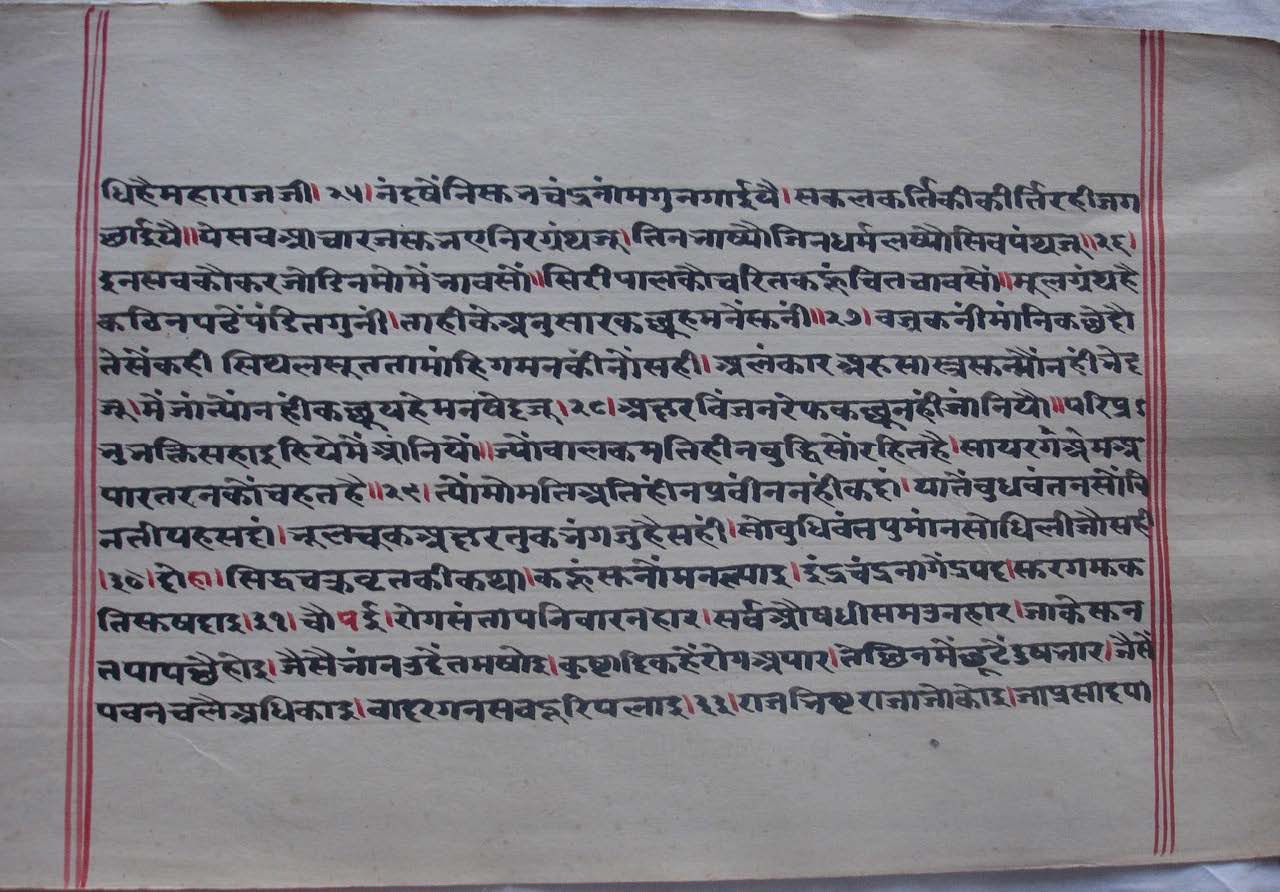 धिहैमहाराजजी। २५। नंदषेंनिस्कनचंद्रनांमगुनगाईयै। सकलकर्तिकीकीर्तिरहीजग
छाईयै॥ येसवआचारजस्कनएनिरग्रंथजू। तिनभाष्यौजिनधर्मलष्यौसिवपंथजू॥ २६।
इनसवकौकरजोडिनमोमेंभावसौं॥ सिरीपालकौचरितकहूंचितचावसौं॥ मूलग्रंथहै
कठिनपढेंपंडितगुनीं। ताहीकेअनुसारकछूहमनेंस्कनीं॥ २७। वजुकनींमांनिकछेदौ
तेसेंकही सिथलसूततामांहिगमनकींनोंसही। अलंकारअरुसास्त्रस्कन्यौंनहींभेद
जू। मेंजांन्योंनहींकछूयहेमनषेदजू। २८। अक्षरविंजनरेफकछूनहींजांनियौ॥ परिप्र
भुभक्तिसहाइहियेमेंआंनियों॥ ज्योंवालकमतिहीनवुद्धिसोंरहितहै। सायरगंभ्रेमअ
पारतरनकोंचहतहै॥ २९। त्योंमोमतिअतिहींनप्रवींननहींकदां। यातैंवुधवंतनसोंवि
नतीयहसदां। भूलचूकअक्षरतुकभंगजुहैसहीं। सोवुधिवंतपुमांनसोधिलीजौसही
।३०। दोहा। सिद्धचक्रवृतकीकथा। कहूंस्कनौंमनल्याइ। इंद्रचंद्रनागेंद्रपद। स्करगमक
तिस्कषदाइ। ३१। चौपई। रोगसंतापनिवारनहार। सर्वऔषधीसमउनहार। जाकेस्कन
तपापछैहोइ। जैसैभांनउदैंतमषोइ। कुष्टादिकहैंरोगअपार। तेछिनमेंछूटेंदुषभार। जैसें
पवनचलैअधिकाइ। वादरगनसवदूरिपलाइ। ३३। राजभिष्टराजाजोकोइ। जाप्रसादपा